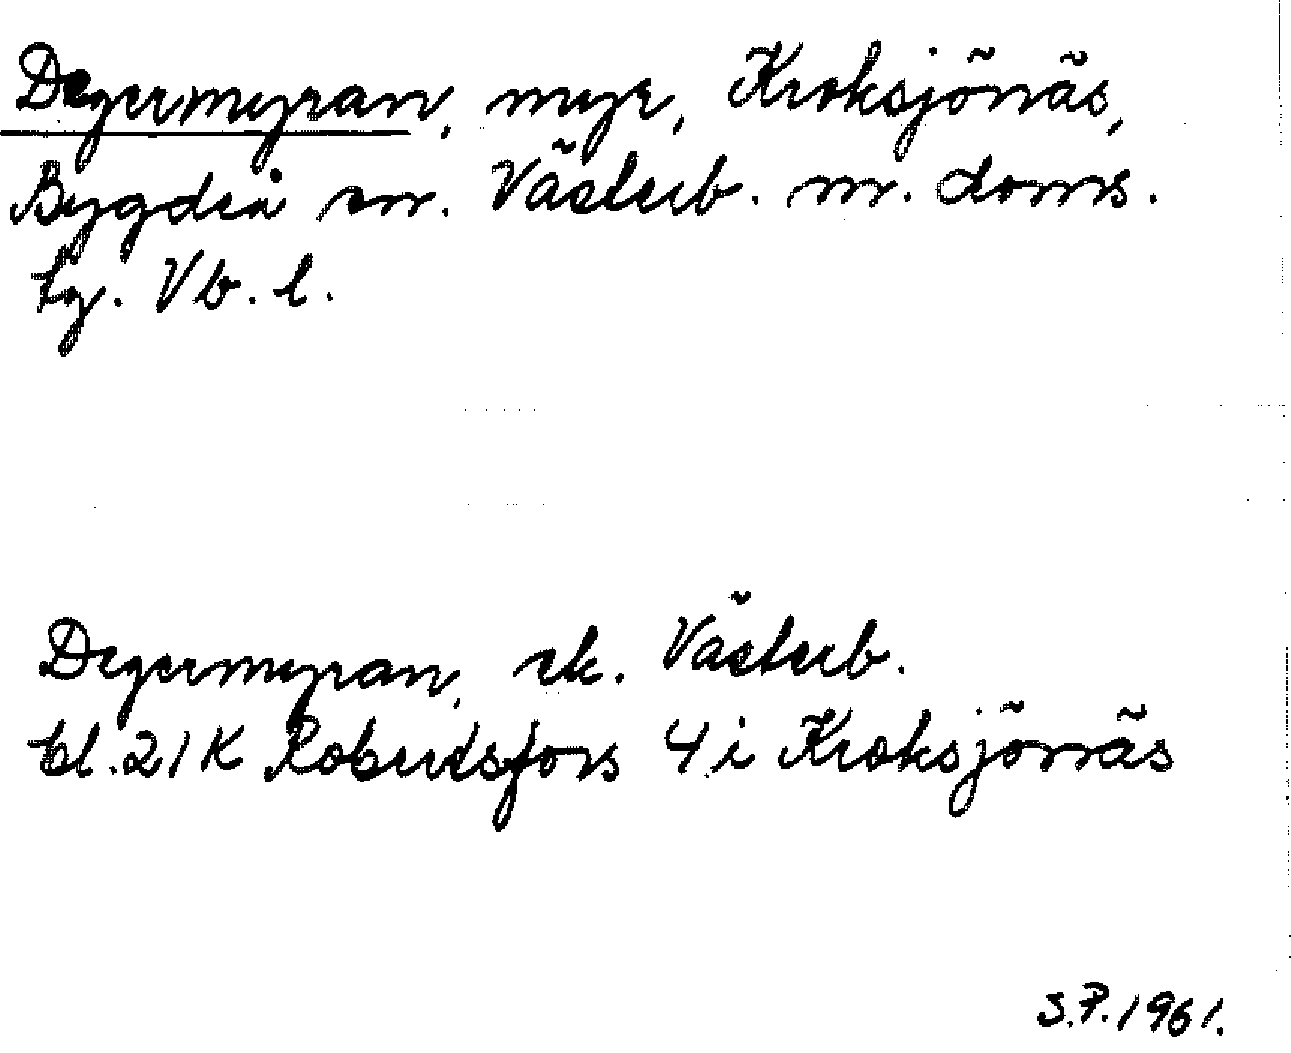 Degermyran, myr, Kroksjönäs,
Bygdeå sn. Västerb. m. doms.
tg. Vb. l.
Degermyran, ek. Västerb.
bl. 21K Robertsfors 4 i Kroksjönäs
S.P. 1961.